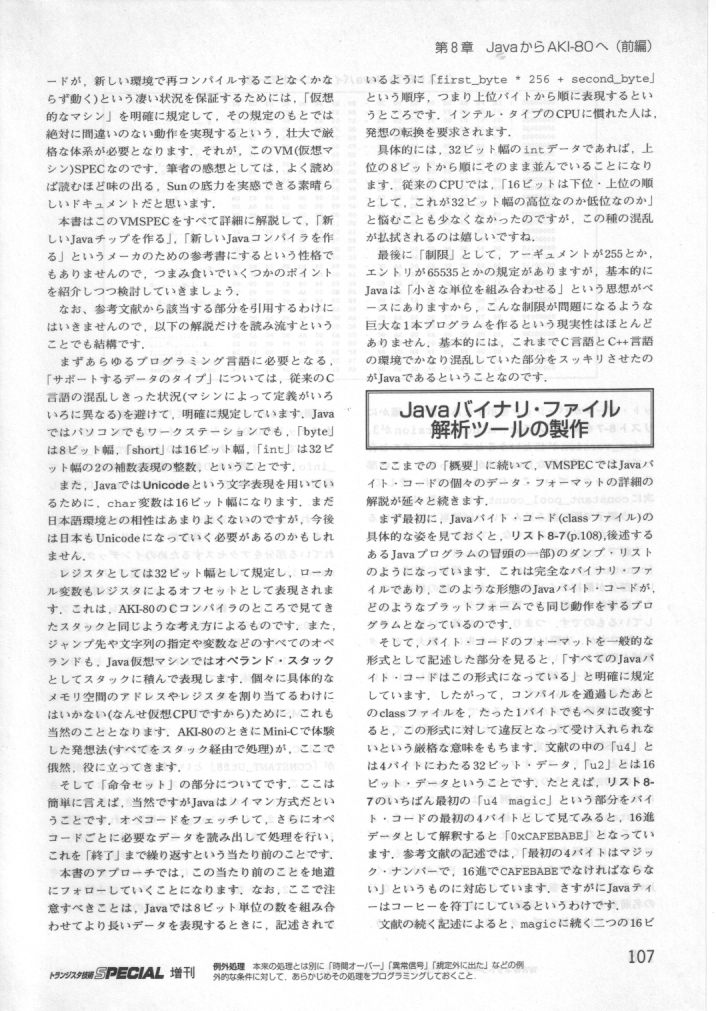 第8章　JavaからAKI-80へ（前編）
ードが，新しい環境で再コンパイルすることなくかな
らず動く)という凄い状況を保証するためには，「仮想
的なマシン」を明確に規定して，その規定のもとでは
絶対に間違いのない動作を実現するという，壮大で厳
格な体系が必要となります．それが，このVM(仮想マ
シン)SPECなのです．筆者の感想としては，よく読め
ば読むほど味の出る，Sunの底力を実感できる素晴ら
しいドキュメントだと思います．
本書はこのVMSPECをすべて詳細に解説して，「新
しいJavaチップを作る」，「新しいJavaコンパイラを作
る」というメーカのための参考書にするという性格で
もありませんので，つまみ食いでいくつかのポイント
を紹介しつつ検討していきましょう．
なお，参考文献から該当する部分を引用するわけに
はいきませんので，以下の解説だけを読み流すという
ことでも結構です．
まずあらゆるプログラミング言語に必要となる，
「サポートするデータのタイプ」については，従来のC
言語の混乱しきった状況(マシンによって定義がいろ
いろに異なる)を避けて，明確に規定しています．Java
ではパソコンでもワークステーションでも，「byte」
は8ビット幅，「short」は16ビット幅，「int」は32ビ
ット幅の2の補数表現の整数，ということです．
また，JavaではUnicodeという文字表現を用いてい
るために，char変数は16ビット幅になります．まだ
日本語環境との相性はあまりよくないのですが，今後
は日本もUnicodeになっていく必要があるのかもしれ
ません．
レジスタとしては32ビット幅として規定し，ローカ
ル変数もレジスタによるオフセットとして表現されま
す．これは，AKI-80のCコンパイラのところで見てき
たスタックと同じような考え方によるものです．また，
ジャンプ先や文字列の指定や変数などのすべてのオペ
ランドも，Java仮想マシンではオペランド・スタック
としてスタックに積んで表現します．個々に具体的な
メモリ空間のアドレスやレジスタを割り当てるわけに
はいかない(なんせ仮想CPUですから)ために，これも
当然のこととなります．AKI-80のときにMini-Cで体験
した発想法(すべてをスタック経由で処理)が，ここで
俄然，役に立ってきます．
そして「命令セット」の部分についてです．ここは
簡単に言えば，当然ですがJavaはノイマン方式だとい
うことです．オペコードをフェッチして，さらにオペ
コードごとに必要なデータを読み出して処理を行い，
これを「終了」まで繰り返すという当たり前のことです．
本書のアプローチでは，この当たり前のことを地道
にフォローしていくことになります．なお，ここで注
意すべきことは，Javaでは8ビット単位の数を組み合
わせてより長いデータを表現するときに，記述されて
いるように「first_byte * 256 + second_byte」
という順序，つまり上位バイトから順に表現するとい
うところです．インテル・タイプのCPUに慣れた人は，
発想の転換を要求されます．
具体的には，32ビット幅のintデータであれば，上
位の8ビットから順にそのまま並んでいることになり
ます．従来のCPUでは，「16ビットは下位・上位の順
として，これが32ビット幅の高位なのか低位なのか」
と悩むことも少なくなかったのですが，この種の混乱
が払拭されるのは嬉しいですね．
最後に「制限」として，アーギュメントが255とか，
エントリが65535とかの規定がありますが，基本的に
Javaは「小さな単位を組み合わせる」という思想がベ
ースにありますから，こんな制限が問題になるような
巨大な1本プログラムを作るという現実性はほとんど
ありません．基本的には，これまでC言語とC++言語
の環境でかなり混乱していた部分をスッキリさせたの
がJavaであるということなのです．
Javaバイナリ・ファイル
解析ツールの製作
ここまでの「概要」に続いて，VMSPECではJavaバ
イト・コードの個々のデータ・フォーマットの詳細の
解説が延々と続きます．
まず最初に，Javaバイト・コード(classファイル)の
具体的な姿を見ておくと，リスト8-7(p.108),後述する
あるJavaプログラムの冒頭の一部)のダンプ・リスト
のようになっています．これは完全なバイナリ・ファ
イルであり，このような形態のJavaバイト・コードが，
どのようなプラットフォームでも同じ動作をするプロ
グラムとなっているのです．
そして，バイト・コードのフォーマットを一般的な
形式として記述した部分を見ると，「すべてのJavaバ
イト・コードはこの形式になっている」と明確に規定
しています．したがって，コンパイルを通過したあと
のclassファイルを，たった1バイトでもヘタに改変す
ると，この形式に対して違反となって受け入れられな
いという厳格な意味をもちます．文献の中の「u4」と
は4バイトにわたる32ビット・データ，「u2」とは16
ビット・データということです．たとえば，リスト8-
7のいちばん最初の「u4 magic」という部分をバイ
ト・コードの最初の4バイトとして見てみると，16進
データとして解釈すると「0xCAFEBABE」となってい
ます．参考文献の記述では，「最初の4バイトはマジッ
ク・ナンバーで，16進でCAFEBABEでなければならな
い」というものに対応しています．さすがにJavaティ
ーはコーヒーを符丁にしているというわけです．
文献の続く記述によると，magicに続く二つの16ビ
トランジスタ技術SPECIAL 増刊
例外処理　本来の処理とは別に「時間オーバー」「異常信号」「規定外に出た」などの例
外的な条件に対して，あらかじめその処理をプログラミングしておくこと．
107